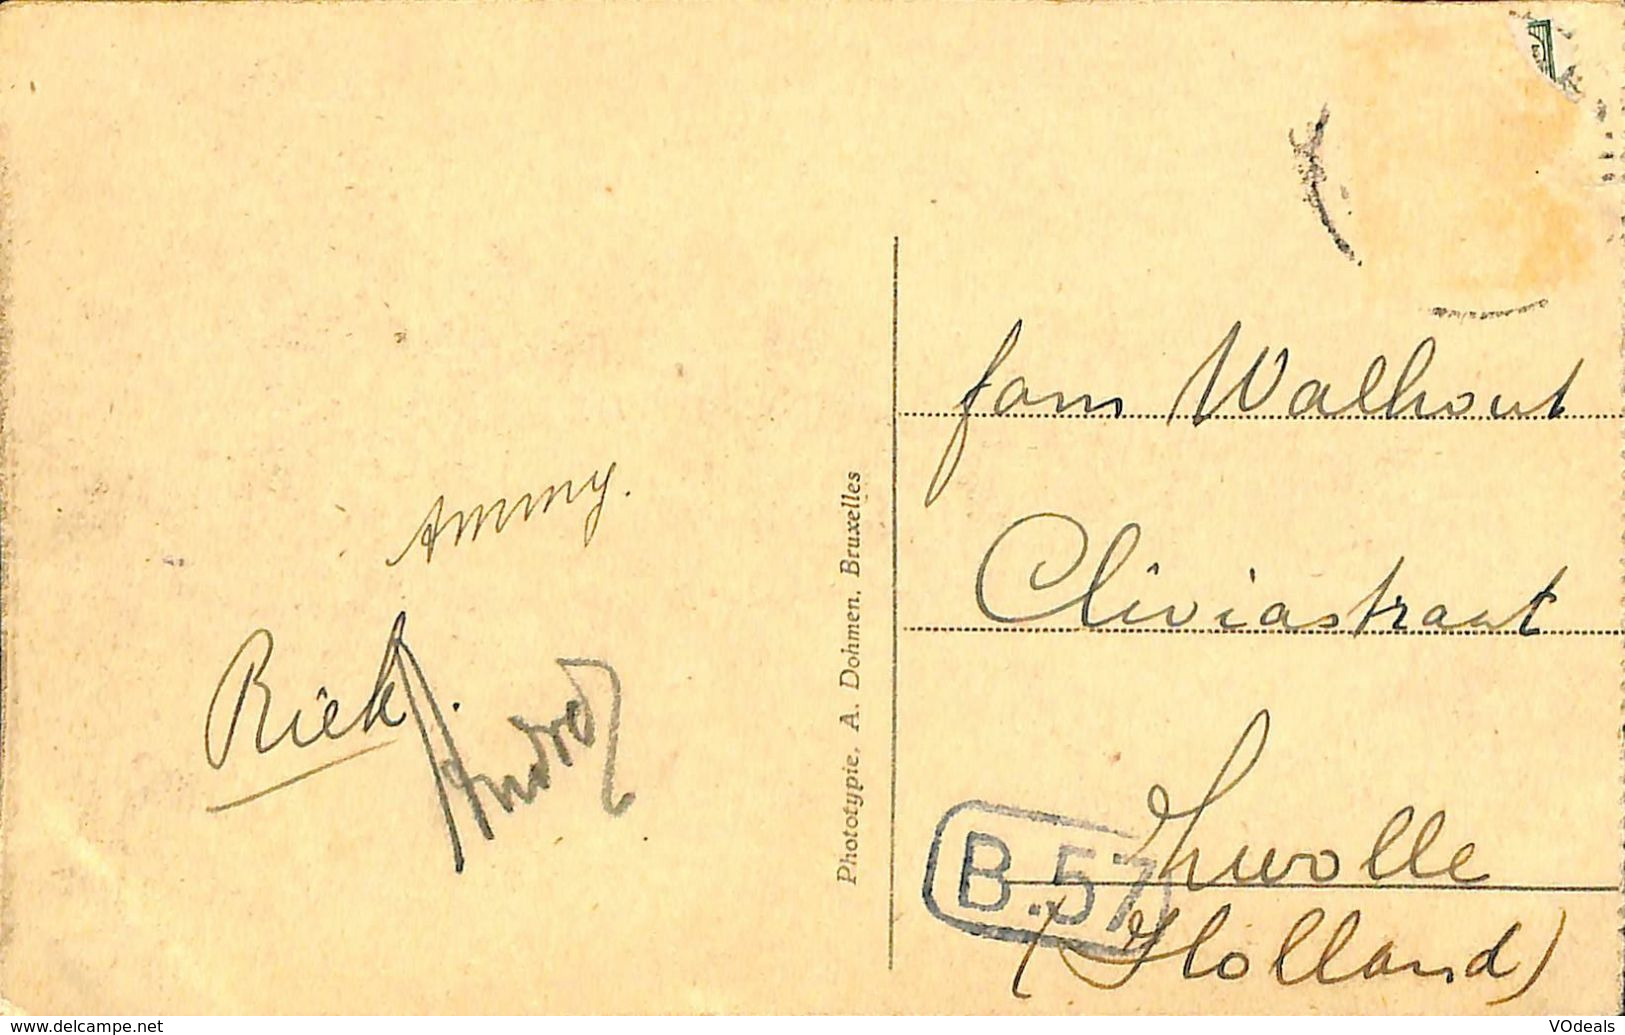 Ammy.
Riek.
André
Phototypie. A. Dohmen. Bruxelles
fam Walhout
Cliviastraat
Zwolle
(Holland)
B.57
www.delcampe.net
VOdeals